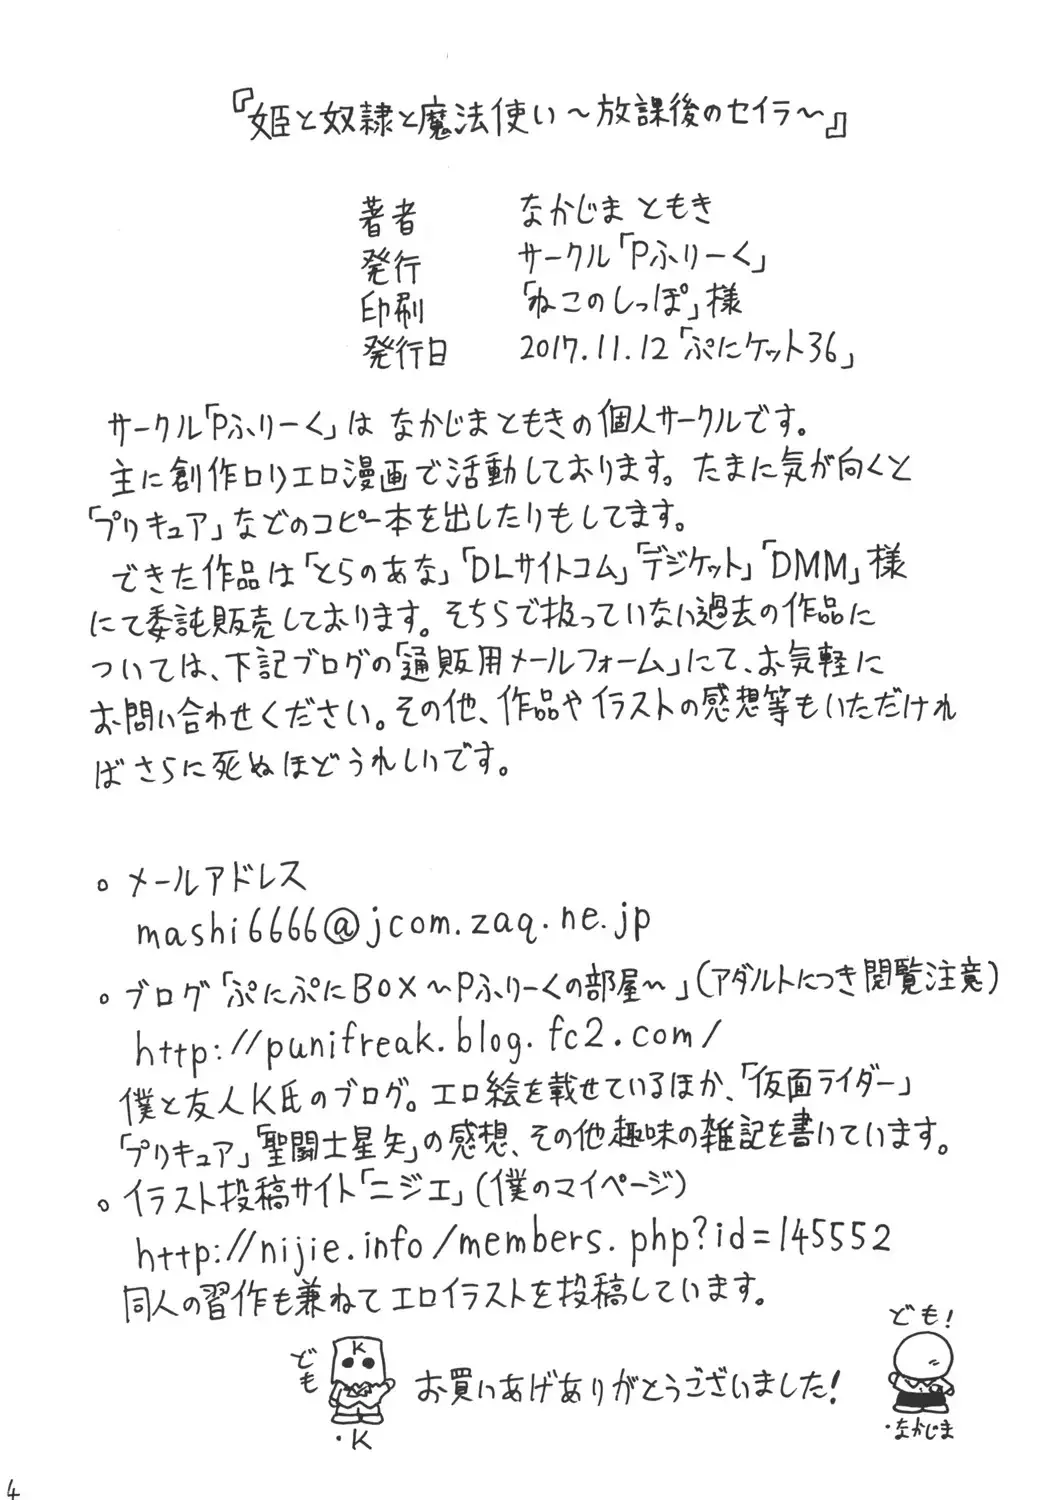 『姫と奴隷と魔法使い～放課後のセイラ～』
著者 なかじまともき
発行 サークル「Pふりーく」
印刷 「ねこのしっぽ」様
発行日 2017.11.12「ぷにケット36」
サークル「Pふりーく」は なかじまともきの個人サークルです。
主に創作ロリエロ漫画で活動しております。たまに気が向くと
「プリキュア」などのコピー本を出したりもしてます。
できた作品は「とらのあな」「DLサイトコム」「デジケット」「DMM」様
にて委託販売しております。そちらで扱っていない過去の作品に
ついては、下記ブログの「通販用メールフォーム」にて、お気軽に
お問い合わせください。その他、作品やイラストの感想等もいただけれ
ばさらに死ぬほどうれしいです。
○ メールアドレス
mashi6666@jcom.zaq.ne.jp
○ ブログ「ぷにぷにBOX～Pふりーくの部屋～」(アダルトにつき閲覧注意)
http://punifreak.blog.fc2.com/
僕と友人K氏のブログ。エロ絵を載せているほか、「仮面ライダー」
「プリキュア」「聖闘士星矢」の感想、その他趣味の雑記を書いています。
○ イラスト投稿サイト「ニジエ」(僕のマイページ)
http://nijie.info/members.php?id=145552
同人の習作も兼ねてエロイラストを投稿しています。
ども
K
・K
お買いあげありがとうございました!
ども!
・なかじま
4